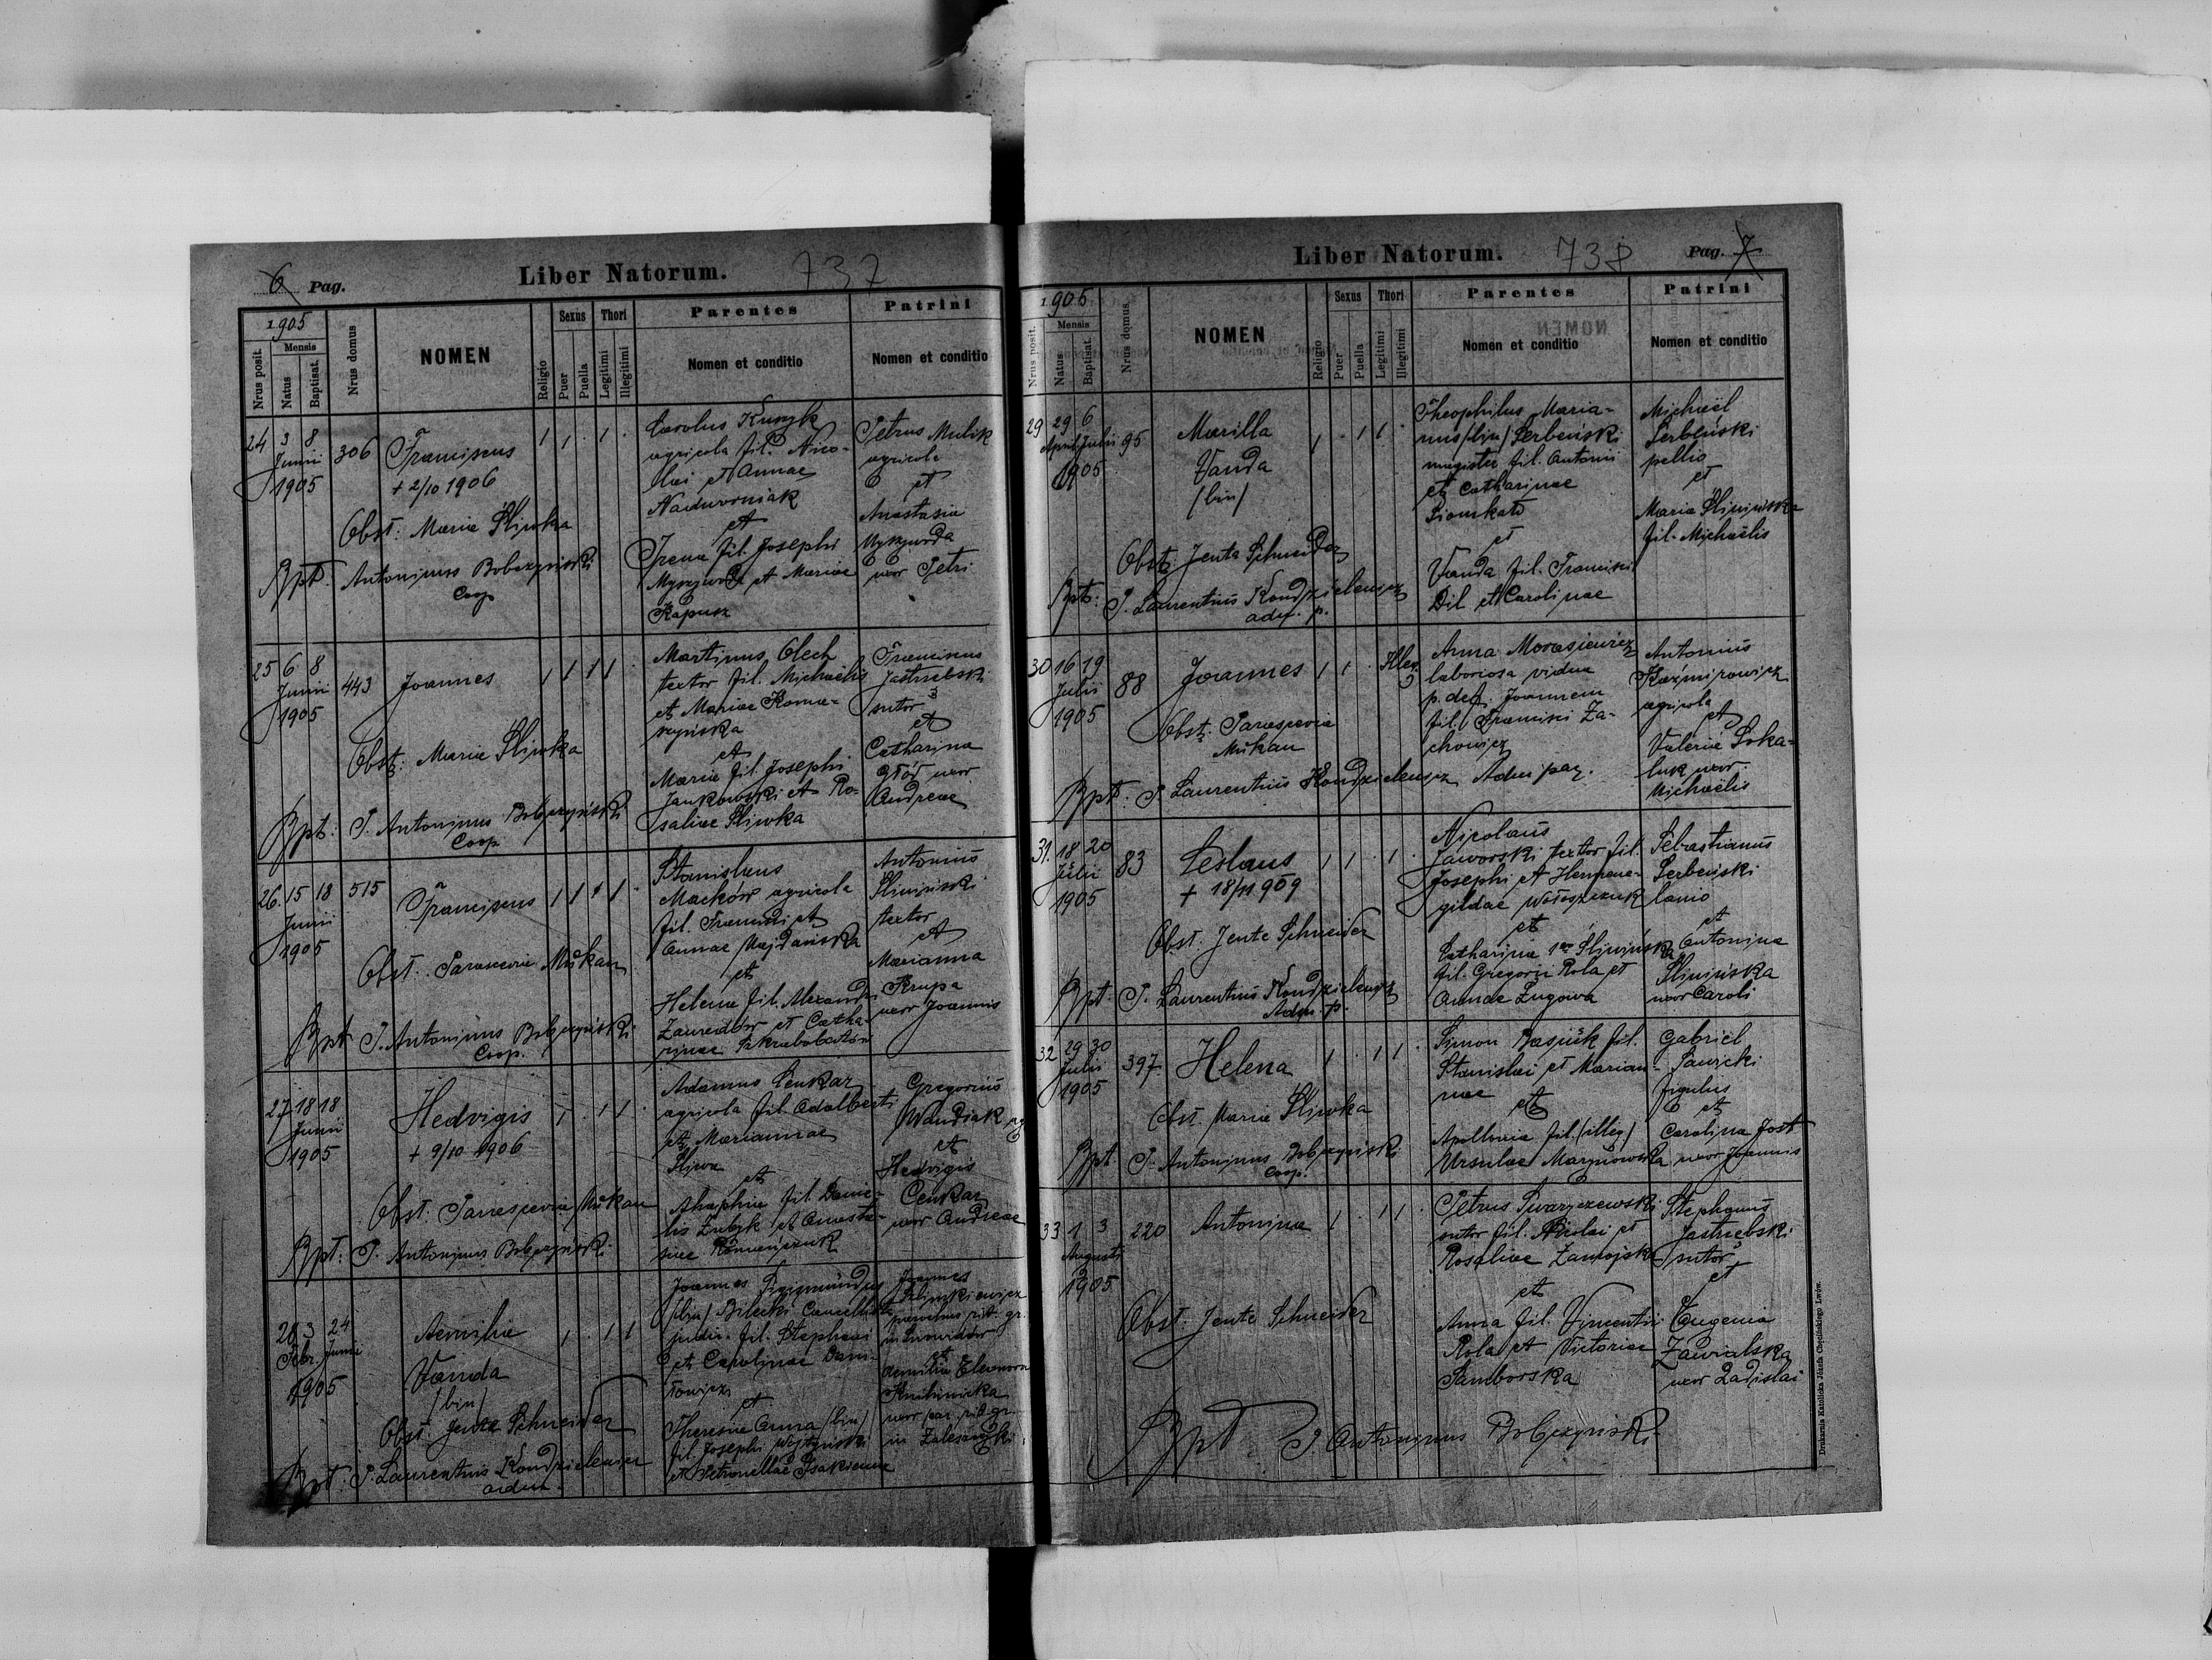 6 Pag.
Liber Natorum.
737
1905
Nrus posit.
Mensis
Natus
Baptisat.
Nrus domus
NOMEN
Religio
Sexus
Puer
Puella
Thori
Legitimi
Illegitimi
Parentes
Nomen et conditio
Patrini
Nomen et conditio
24 3 8 306 Franciscus 1 1 . 1 .
Junii
1905
+ 2/10 1906
Obst: Maria Śliwka
Bpt. Antoninus Bobczyński
Coop
Carolus Kuzyk
agricola fil. Nico-
lai et Annae
Nadworniak
et
Irena fil. Josephi
et Mariae
Kapusz
Petrus Mulik
agricola
et
Anastasia
uxor Petri
25 6 8 443 Joannes 1 1 1 1 .
Junii
1905
Obst: Maria Śliwka
Bpt: P. Antoninus Bobczyński
Coop
Martinus Olech
textor fil. Michaëlis
et Mariae Roma-
szyńska
et
Maria fil. Josephi
Jankowski et Ro-
saliae Śliwka
Franciscus
Jastrzebski
sutor
et
Catharina
Głód uxor
Andreae
26. 15 18 515 Franciscus 1 1 1 .
Junii
1905
Obst. Parascevia Mukan
Bpt P. Antoninus Bobczyński
Coop.
Stanislaus
Maćków agricola
fil. Francisci et
Annae Majdańska
et
Helena fil. Alexandri
et Catha-
rinae
Antonius
Śliwiński
textor
et
Marianna
Krupa
uxor Joannis
27 18 18 Hedvigis 1 . 1 1 .
Junii
1905
+ 9/10 1906
Obst. Parascevia Mukan
Bpt. P. Antoninus Bobczyński
Adamus Cenkar
agricola fil. Adalberti
et Mariannae
Śliwa
et
fil. Danie-
lis et Anasta-
siae Romańczuk
Gregorius
Wandiak ag
et
Hedvigis
Cenkar
uxor Andreae
28 3 24 Aemilia 1 . 1 1
Febr. Junii
1905
Vanda
/bin/
Obst. Jente Schneider
Bpt. P. Laurentius Kondzielewicz
adm.
Joannes Sigismundus
/bin/ Bilecki Cancellista
judic. fil. Stephani
et Carolinae Dani-
łowicz
et
Theresia Anna /bin/
fil. Josephi Wójtyński
et Petronellae
Joannes
parochus rit. gr.
in
et
Aemilia Eleonora
uxor par. rit. gr.
in Zaleszczyki
Liber Natorum.
738
Pag. 7
1905
Nrus posit.
Mensis
Natus
Baptisat.
Nrus domus.
NOMEN
Religio
Sexus
Puer
Puella
Thori
Legitimi
Illegitimi
Parentes
Nomen et conditio
Patrini
Nomen et conditio
29 29 6 95 Marilla 1 . 1 1 .
April Julii
1905
Vanda
/bin/
Obst: Jenta Schneider
Bpt: P. Laurentius Kondzielewicz
adm. p.
Theophilus Maria-
nus /bin/ Serbeński
magister fil. Antonii
et Catharinae
et
Vanda fil. Francisci
Dil et Carolinae
Michaël
Serbeński
pellio
et
Maria Śliwińska
fil. Michaëlis
30 16 19 88 Joannes 1 1 . Illeg.
Julii
1905
Obst: Parascevia
Mukan
Bpt: P. Laurentius Kondzielewicz Adm par.
Anna Morasiewicz
laboriosa vidua
p. def. Joannem
fil. Francisci Za-
chowicz
Antonius
Kaźmirowicz
agricola
et
Valeria Soka-
luk uxor.
Michaëlis
31. 18 20 83 Leslaus 1 1 . 1 .
Julii
1905
+ 18/11 909
Obst. Jente Schneider
Bpt. P. Laurentius Kondzielewicz
Adm. p.
Nicolaus
Jaworski textor fil.
Josephi et Herme-
gildae Wołoszczuk
et
Catharina Śliwińska
fil. Gregorii Rola et
Annae Zugowa
Sebastianus
Serbeński
lanio
et
Antonina
Śliwińska
uxor Caroli
32 29 30 397. Helena 1 . 1 1 .
Julii
1905
Obst. Maria Śliwka
Bpt P. Antoninus Bobczyński
Coop.
Simon fil.
Stanislai et Marian-
nae
et
Apollonia fil. /illeg/
Ursulae Marynowska
Gabriel
Sawicki
figulus
et
Carolina Jost
uxor Joannis
33 1 3 220 Antonina 1 . 1 1 .
Augusti
1905
Obst. Jente Schneider
Petrus Twaryczewski
sutor fil. Nicolai et
Rosaliae Zamojska
et
Anna fil. Vincentii
Rola et Victoriae
Samborska
Stephanus
Jastrzebski
sutor
et
Eugenia
Zawialska
uxor Ladislai
Bpt P. Antoninus Bobczyński
Drukarnia Katolicka Józefa Chęcińskiego Lwów.